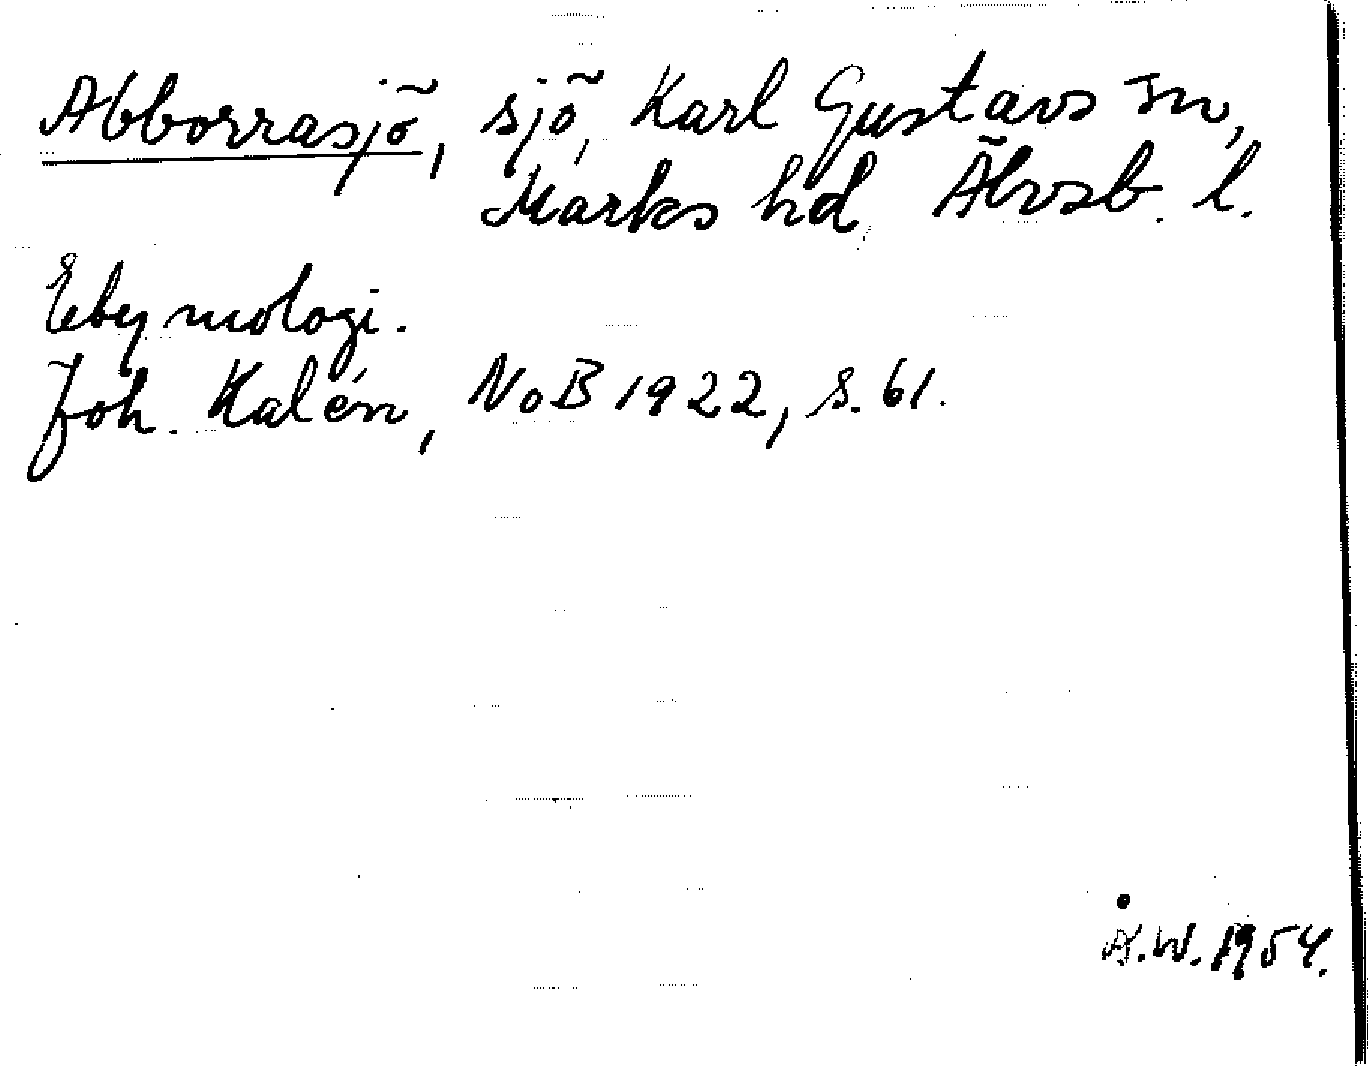 Abborrasjö, sjö, Karl Gustavs sn,
Marks hd, Älvsb. l.
Etymologi.
Joh. Kalén, NoB 1922, s. 61.
Å.W. 1954.